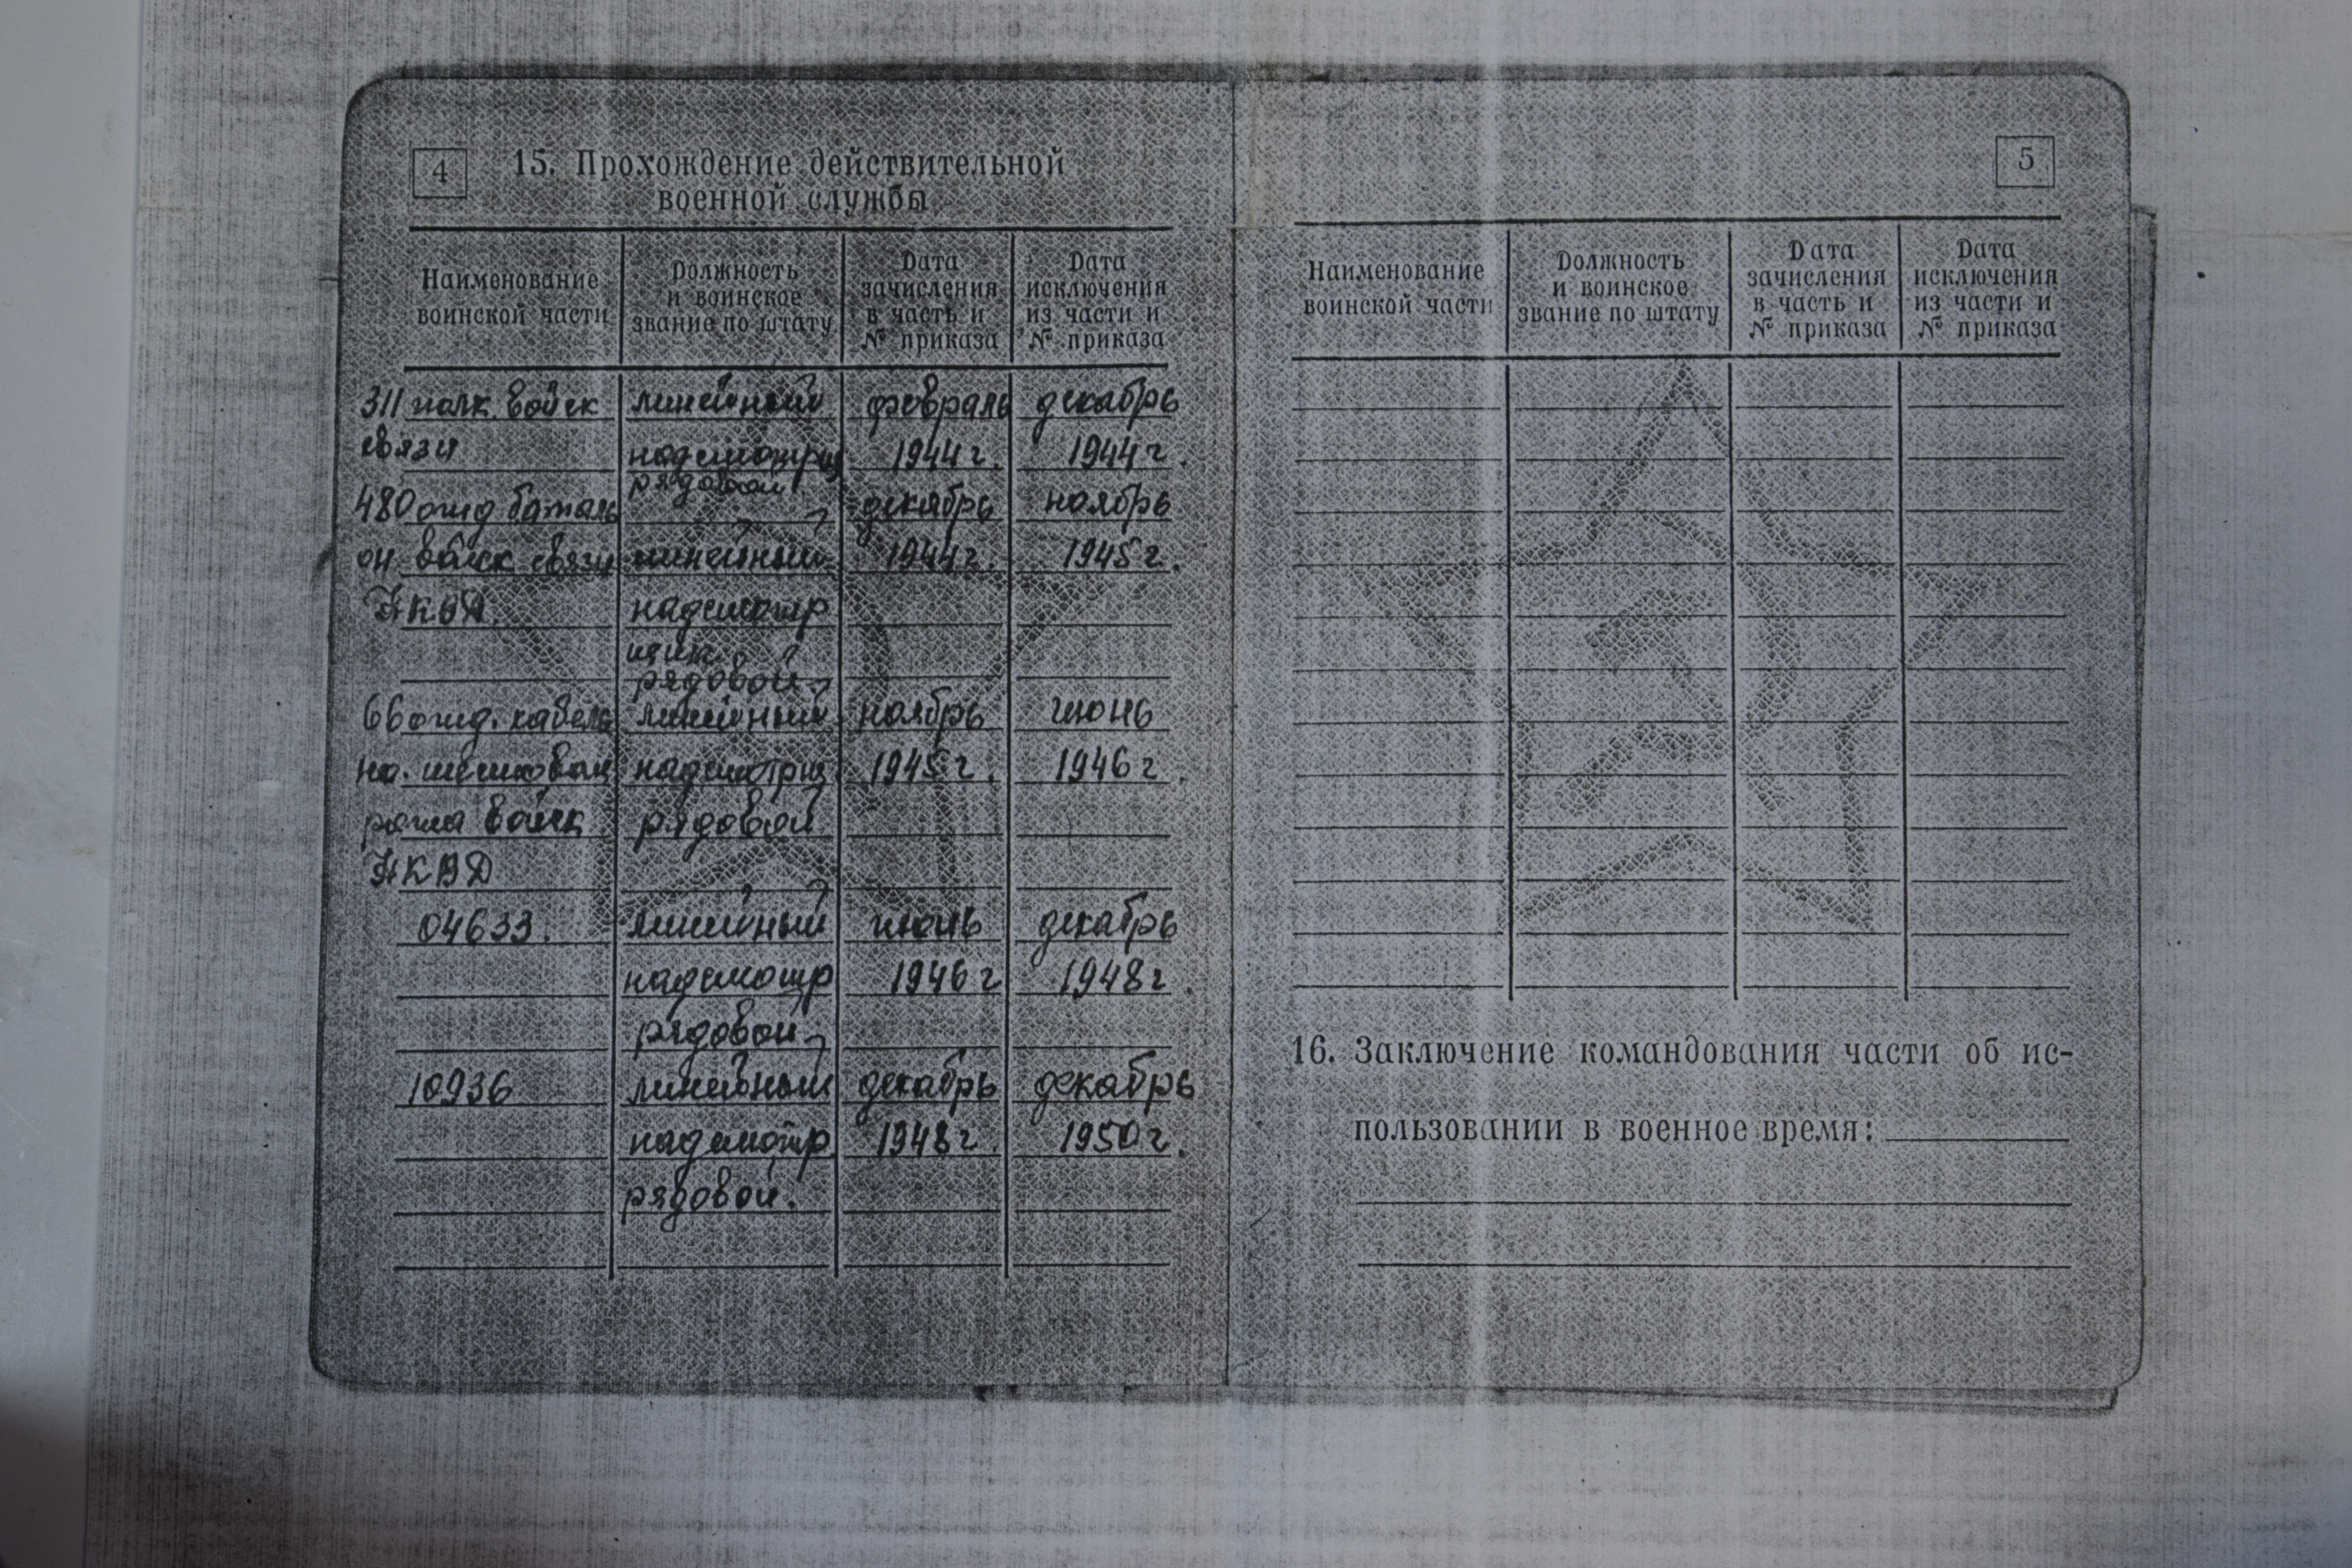 4
15. Прохождение действительной
военной службы
Наименование воинской части
Должность и воинское звание по штату
Дата зачисления в часть и № приказа
Дата исключения из части и № приказа
311 полк войск линейный февраль декабрь
связи надсмотрщ 1944 г. 1944 г.
рядовой
480 отд баталь декабрь ноябрь
он войск связи линейный 1944 г. 1945 г.
НКВД надсмотр
щик
рядовой
66 отд. кабель линейный ноябрь июнь
но. шестовая надсмотрщ 1945 г. 1946 г.
рота войск рядовой
НКВД
04633. линейный июнь декабрь
надсмотр 1946 г 1948 г.
рядовой
10936 линейный декабрь декабрь
надсмотр 1948 г 1950 г.
рядовой.
5
Наименование воинской части
Должность и воинское звание по штату
Дата зачисления в часть и № приказа
Дата исключения из части и № приказа
16. Заключение командования части об ис-
пользовании в военное время: